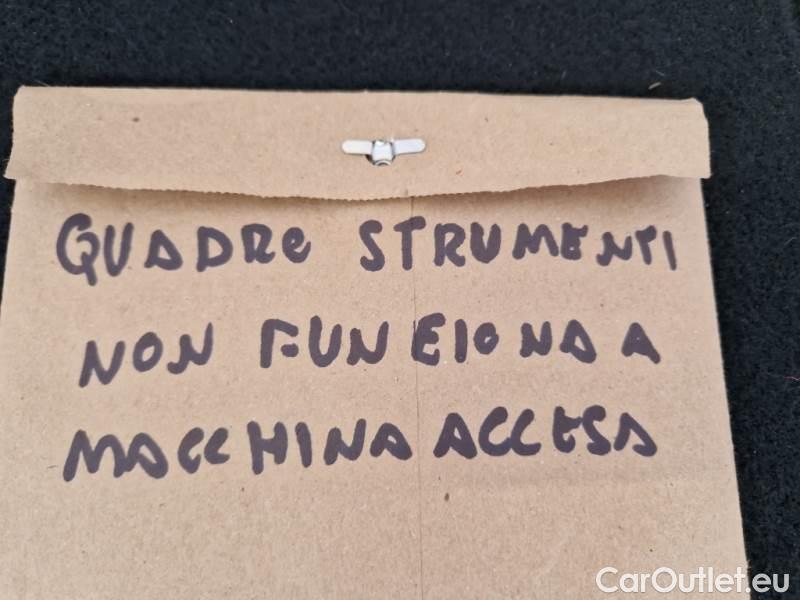 QUADRO STRUMENTI
NON FUNZIONA A
MACCHINA ACCESA
CarOutlet.eu